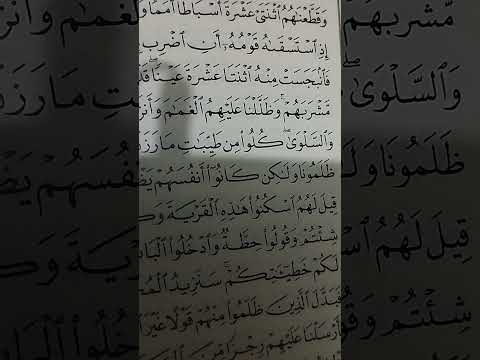 وَقَطَّعْنَٰهُمُ ٱثْنَتَىْ عَشْرَةَ أَسْبَاطًا أُمَمًا
إِذِ ٱسْتَسْقَىٰهُ قَوْمُهُۥٓ أَنِ ٱضْرِب
فَٱنۢبَجَسَتْ مِنْهُ ٱثْنَتَا عَشْرَةَ عَيْنًا ۖ قَدْ
مَّشْرَبَهُمْ ۚ وَظَلَّلْنَا عَلَيْهِمُ ٱلْغَمَٰمَ وَأَنز
وَٱلسَّلْوَىٰ ۖ كُلُوا۟ مِن طَيِّبَٰتِ مَا رَزَ
ظَلَمُونَا وَلَٰكِن كَانُوٓا۟ أَنفُسَهُمْ يَظ
قِيلَ لَهُمُ ٱسْكُنُوا۟ هَٰذِهِ ٱلْقَرْيَةَ وَكُ
شِئْتُمْ وَقُولُوا۟ حِطَّةٌ وَٱدْخُلُوا۟ ٱلْبَا
لَكُمْ خَطِيٓـَٰٔتِكُمْ ۚ سَنَزِيدُ ٱلْمُ
فَبَدَّلَ ٱلَّذِينَ ظَلَمُوا۟ مِنْهُمْ قَوْلًا غَيْرَ
فَأَرْسَلْنَا عَلَيْهِمْ رِجْزًا مِّنَ